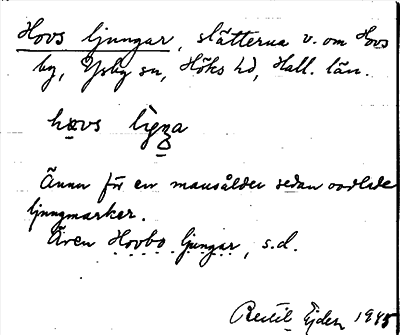 Hovs ljungar, slätterna v. om Hovs
by, Ysby sn, Höks hd, Hall. län.
hovs
Ännu för en mansålder sedan oodlade
ljungmarker.
Även Hovbo ljungar, s.d.
Bertil Ejder 1945